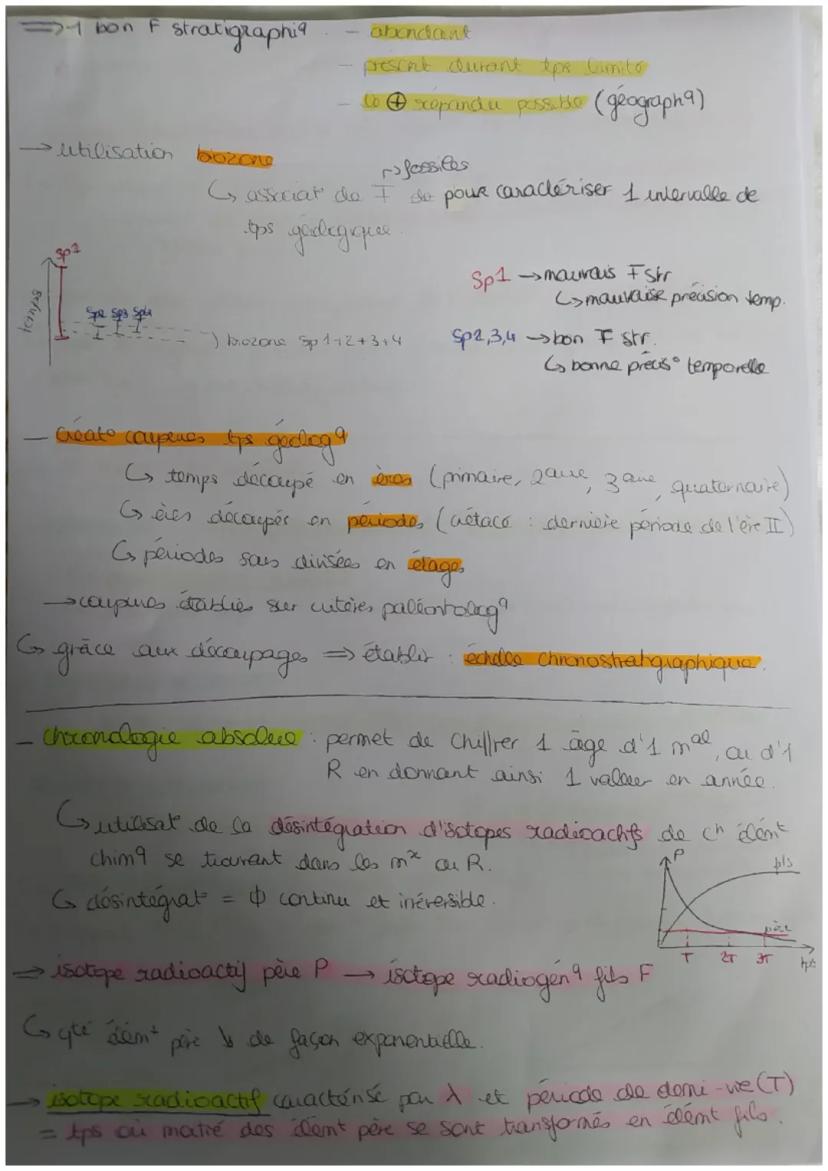 ⇒ 1 bon F stratigraphiq - abondant
- présent durant tps limité
- le ⊕ répandu possible (géographq)
→ utilisation biozone
↳ associat° de F de pour caractériser 1 intervalle de
↱ fossiles
tps géologique.
sp1
temps
Sp2 Sp3 Sp4
) biozone sp 1+2+3+4
Sp1 → mauvais F str
↳ mauvaise précision temp.
Sp2,3,4 → bon F str.
↳ bonne précis° temporelle
- Créat° coupures tps géologq
↳ temps découpé en ères (primaire, 2aire, 3aire, quaternaire)
↳ ères découpés en périodes (crétacé : dernière période de l'ère II)
↳ périodes sous divisées en étages
→ coupures établies sur critères paléontologq
↳ grâce aux découpages ⇒ établir : échelle chronostratigraphique.
- chronologie absolue : permet de chiffrer 1 âge d'1 mal, ou d'1
R en donnant ainsi 1 valeur en année.
↳ utilisat° de la désintégration d'isotopes radioactifs de ch élémt
chimq se trouvant dans les mx ou R.
↳ désintégrat° = ϕ continu et irréversible.
P
fils
père
T 2T 3T tps
⇒ isotope radioactif père P → isotope radiogénq fils F
↳ qté élémt père ↘ de façon exponentielle.
→ isotope radioactif caractérisé par λ et période de demi-vie (T)
= tps où moitié des élémt père se sont transformés en élémt fils.